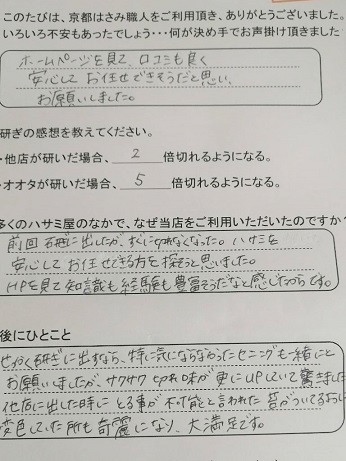 このたびは、京都はさみ職人をご利用頂き、ありがとうございました。
いろいろ不安もあったでしょう・・・何が決め手でお声掛け頂きました
ホームページを見て、口コミも良く
安心してお任せできそうだと思い、
お願いしました。
研ぎの感想を教えてください。
・他店が研いだ場合、 2 倍切れるようになる。
・オオタが研いだ場合、 5 倍切れるようになる。
多くのハサミ屋のなかで、なぜ当店をご利用いただいたのですか?
前回研ぎに出したが、すぐに切れなくなった。ハサミを
安心してお任せできる方を探そうと思いました。
HPを見て知識も経験も豊富そうだなと感じたからです。
後にひとこと
せっかく研ぎに出すなら、特に気にならなかったセニングも一緒にと
お願いしましたが、サクサク切れ味が更にUPしていて驚きました
他店に出した時にとる事が不可能と言われた
変色していた所も奇麗になり、大満足です。